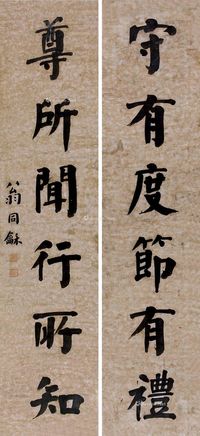 守有度節有禮
尊所聞行所知
翁同龢